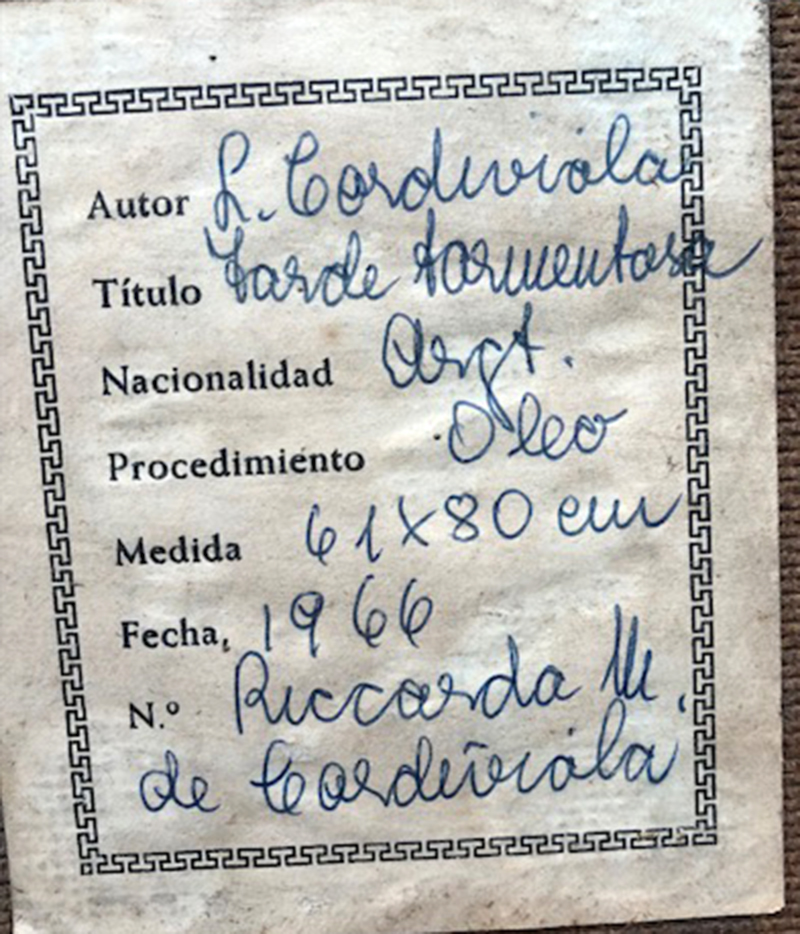 Autor L. Cordiviola
Título Tarde tormentosa
Nacionalidad Argt.
Procedimiento Oleo
Medida 61x80 cm
Fecha, 1966
N.º Riccarda M.
de Cordiviola